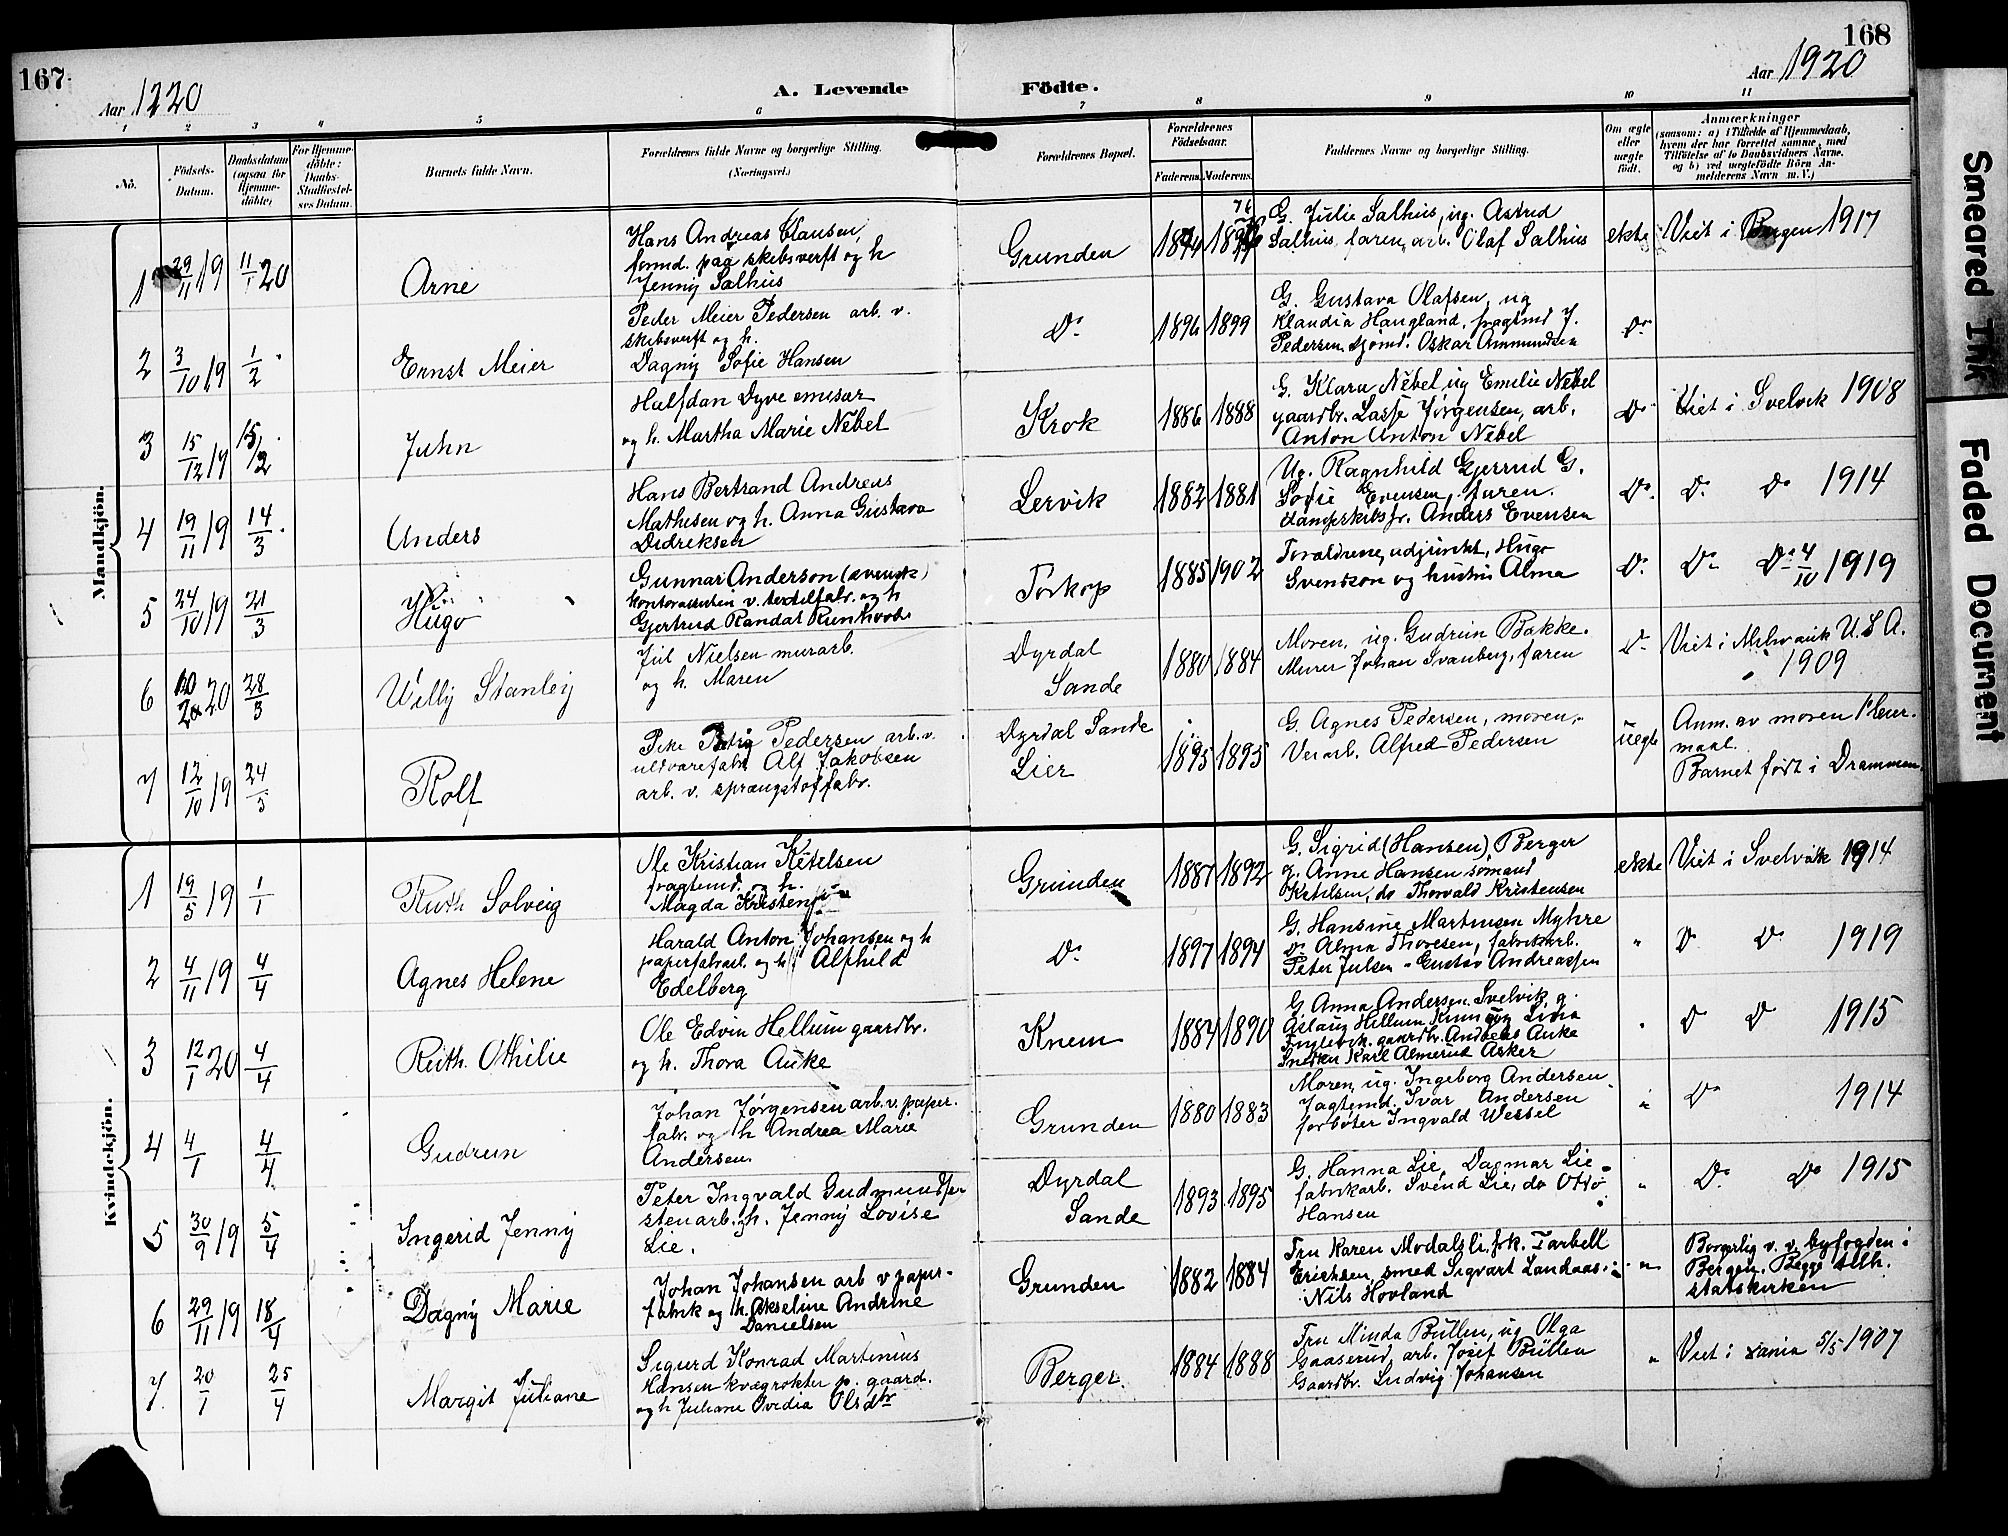 167
Aar 1920
A. Levende
Födte.
168
Aar 1920
1 2 3 4 5 6 7 8 9 10 11
No.
Födsels-
Datum.
Daabsdatum
(ogsaa for
Hjemme-
döbte)
For Hjemme-
döbte:
Daabs-
Stadfæstel-
ses Datum.
Barnets fulde Navn.
Forældrenes fulde Navne og borgerlige Stilling.
(Næringsvei.)
Forældrenes Bopæl.
Forældrenes
Födselsaar.
Faderens. Moderens.
Faddernes Navne og borgerlige Stilling.
Om ægte
eller
uægte
födt.
Anmærkninger
(saasom: a) i Tilfælde af Hjemmedaab,
hvem der har forrettet samme, med
Tilföielse af to Daabsvidners Navne,
og b) ved uægtefödte Börn An-
melderens Navn m. V.)
Mandkjön.
1 29/11 19 11/1 20 Arne
Hans Andreas Clausen,
formd. paa skibsverft og h
Jenny Salhus
Grunden
G. Julie Salhus, ug. Astrid
Salhus, faren, arb. Olaf Salhus
ekte
Viet i Bergen 1917
2 3/10 19 1/2 Ernst Meier
Peder Meier Pedersen arb. v.
skibsverft og h.
Dagny Sofie Hansen
Do 1896 1899
G. Gustava Olafsen, ug
Klaudia Haugland, fragtmd J.
Pedersen, sjömd. Oskar Ammundsen
Do
3 15/12 19 15/2 John
Halfdan Dyve emisær
og h. Martha Marie Nebel
Krok 1886 1888
G. Klara Nebel, ug Emilie Nebel
gaardbr. Lasse Jørgensen, arb.
Anton Anton Nebel
Do
Viet i Svelvik 1908
4 19/11 19 14/3 Anders
Hans Bertrand Andreas
Mathisen og h. Anna Gustava
Didreksen
Lervik 1882 1881
Ug. Ragnhild Gjerrud G.
Sofie Evensen, faren.
dampskibsfr. Anders Evensen
Do. Do Do 1914
5 24/10 19 21/3 Hugo
Gunnar Anderson (svensk)
v. textilfabr. og h
Gjertrud Randal
Torkop 1885 1902
Foraldrene, adjunkt, Hugo
Svendson og hustru Alma
Do. Do Do 4/10 1919
6 20 28/3 Willy Stanley
Jul Nielsen murarb.
og h. Maren
Dyrdal
Sande
1880 1884
Moren, ug. Gudrun Bakke.
Murer Johan Svanberg, faren
Do
Viet i Milwauk U.S.A.
1909
7 12/10 19 24/3 Rolf
Pike Pedersen arb. v.
uldvarefabr Alf Jakobsen
arb. v. sprængstoffabr.
Dyrdal Sande
Lier
1895 1895
G. Agnes Pedersen, moren,
Alfred Pedersen
uegte
Anm. av moren 1ste leier-
maal.
Barnet født i Drammen.
Kvindekjön.
1 19/5 19 1/1 Ruth Solveig
Ole Kristian Ketelsen
fragtemd. og h.
Magda Kristensen
Grunden 1887 1892
G. Sigrid (Hansen) Berger
g. Anne Hansen sømand
Ketilsen, do Thorvald Kristensen
ekte
Viet i Svelvik 1914
2 4/11 19 4/4 Agnes Helene
Harald Anton Johansen og h
papirfabrarb. og h Alfhild
Edelberg
Do 1897 1894
G. Hansine Martinsen Myhre
Do Alma Thoresen, fabrikarb.
Peter Julsen - Gustav Andreassen
" Do Do 1919
3 12/1 20 4/4 Ruth Othilie
Ole Edvin Hellum gaardbr.
og h. Thora Auke
Knem 1884 1890
G. Anna Andersen Svelvik, g.
Aslaug Hellum Knem ug Lina
gaardbr. Andreas Auke
Snedker Karl Almerud Asker
" Do Do 1915
4 4/1 4/4 Gudrun
Johan Jørgensen arb. v. papir-
fabr. og h Andrea Marie
Andersen.
Grunden 1880 1883
Moren, ug. Ingeborg Andersen
fagtemd. Ivar Andersen
forbøter Ingvald Wessel
" Do 1914
5 30/9 19 5/4 Ingerid Jenny
Peter Ingvald Gudmundsen
stenarb. og h. Jenny Lovise
Lie.
Dyrdal
Sande
1893 1895
G. Hanna Lie, Dagmar Lie
fabrikarb. Svend Lie, do Otto
Hansen
" Do. Do 1915
6 29/11 19 18/4 Dagny Marie
Johan Johansen arb v papir-
fabrik og h. Akseline Andrine
Danielsen
Grunden 1882 1884
Fru Karen Modalsli, frk. Torbell
Erichsen, smed Sigvart Landaas
Nils Hovland
"
Borgerlig v. v. byfogden i
Bergen. Begge tilh.
statskirken
7. 20/1 25/4 Margit Juliane
Sigurd Konrad Martinius
Hansen kvægrøkter p. gaard.
og h Juliane Ovedia Olsdtr
Berger. 1884 1888
Fru Minda Büllen, ug Olga
Gaaserud, arb. Josef Büllen
Gaardbr. Ludvig Johansen
"
Viet i xania 5/5 1907
Smeared Ink
Faded Document